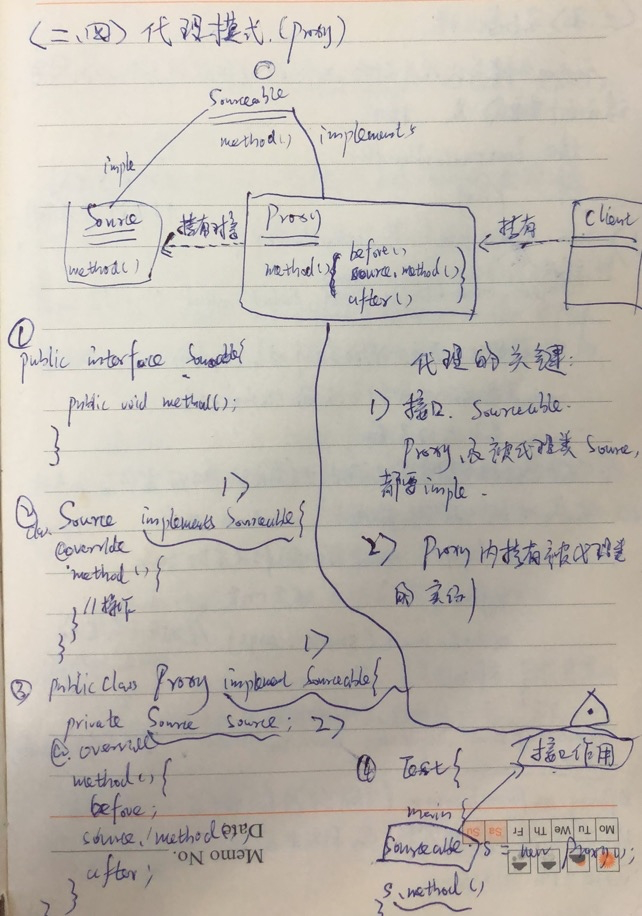 (二、四) 代理模式.(Proxy)
Sourceable
method()
imple
implements
Source
method()
持有对接
Proxy
method(){
before()
source.method()
after()
}
持有
Client
①
public interface Sourceable{
public void method();
}
代理的关键:
1) 接口. Sourceable.
Proxy、及被代理类 Source,
都要 imple.
2) Proxy 内持有被代理类
的实例
1)
② class Source implements Sourceable{
@override
method(){
//操作
}
}
1)
③ public class Proxy implement Sourceable{
private Source source; 2)
@override
method(){
before;
source.method();
after;
}
}
接口作用
④ Test{
main{
Sourceable s = new Proxy();
s.method()
}
Mo Tu We Th Fr Sa Su
Memo No.
Date